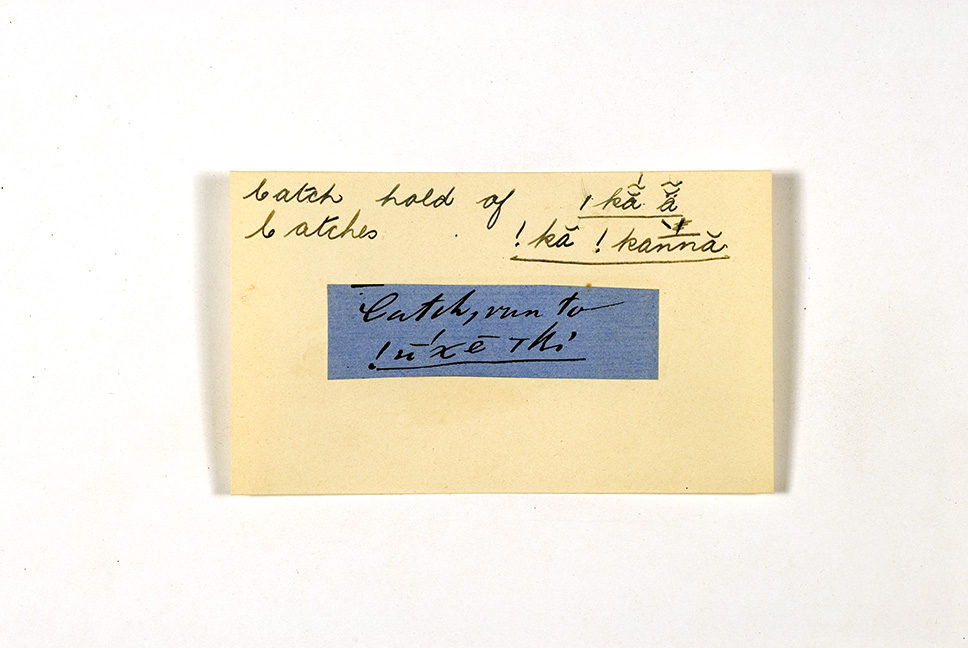 Catch hold of ı kã̆́ ã̆
Catches !kă !kannă
Catch, run to
!ū'χē тki